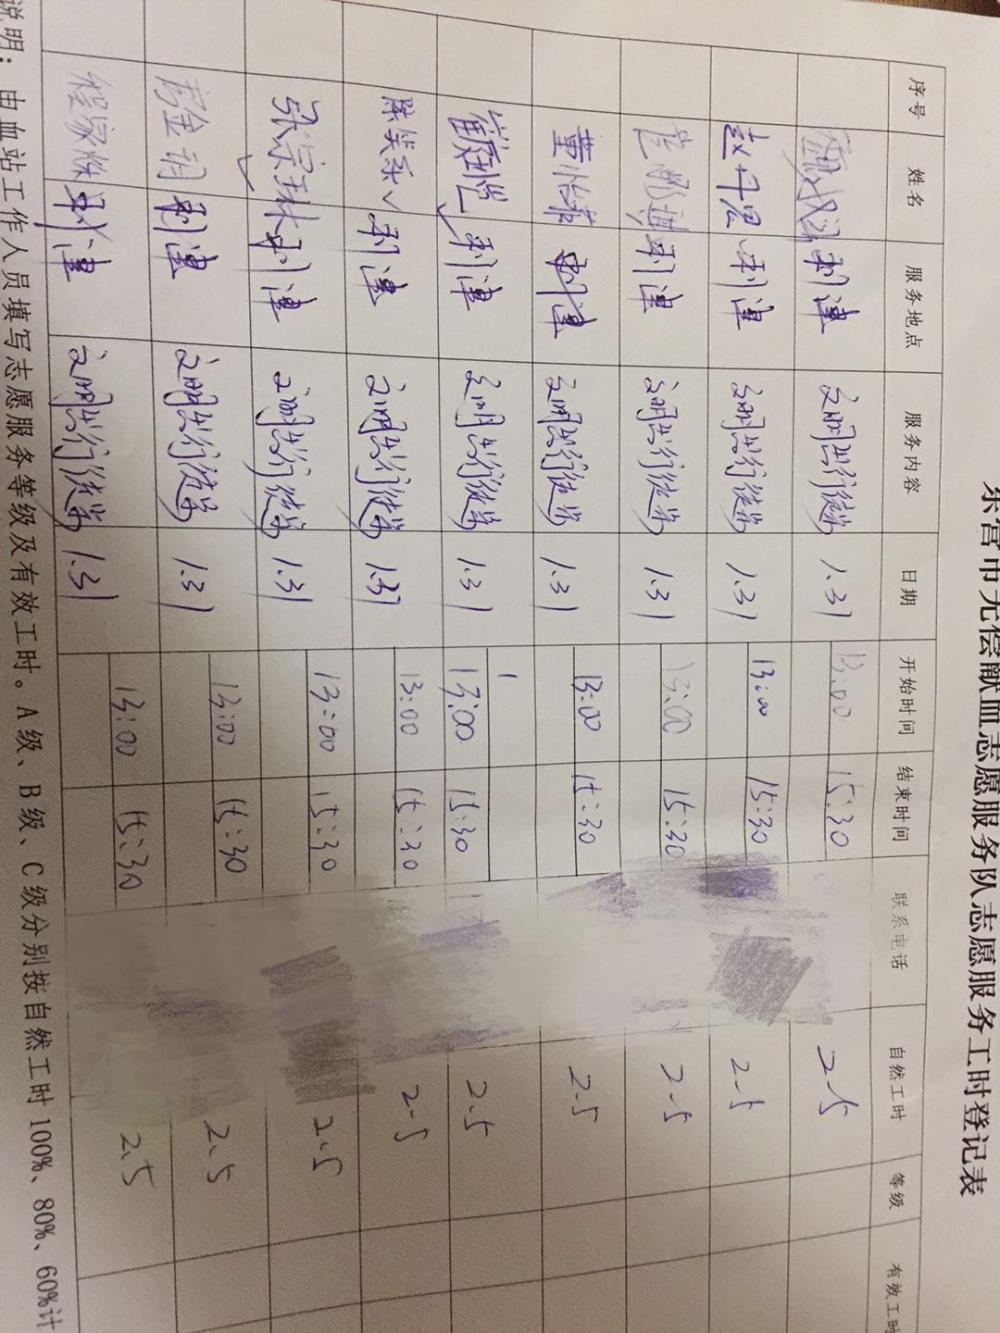 东营市无偿献血志愿服务队志愿服务工时登记表
序号 姓名 服务地点 服务内容 日期 开始时间 结束时间 联系电话 自然工时 等级 有效工时
利津 文明出行徒步 1.31 13:00 15:30 2.5
赵丹 利津 文明出行徒步 1.31 13:00 15:30 2.5
利津 文明出行徒步 1.31 13:00 15:30 2.5
董怡 利津 文明出行徒步 1.31 13:00 15:30 2.5
崔 利津 文明出行徒步 1.31 13:00 15:30 2.5
陈笑乐 利津 文明出行徒步 1.31 13:00 15:30 2.5
宗林 利津 文明出行徒步 1.31 13:00 15:30 2.5
金 利津 文明出行徒步 1.31 13:00 15:30 2.5
程家 利津 文明出行徒步 1.31 13:00 15:30 2.5
说明：由血站工作人员填写志愿服务等级及有效工时。A级、B级、C级分别按自然工时100%、80%、60%计